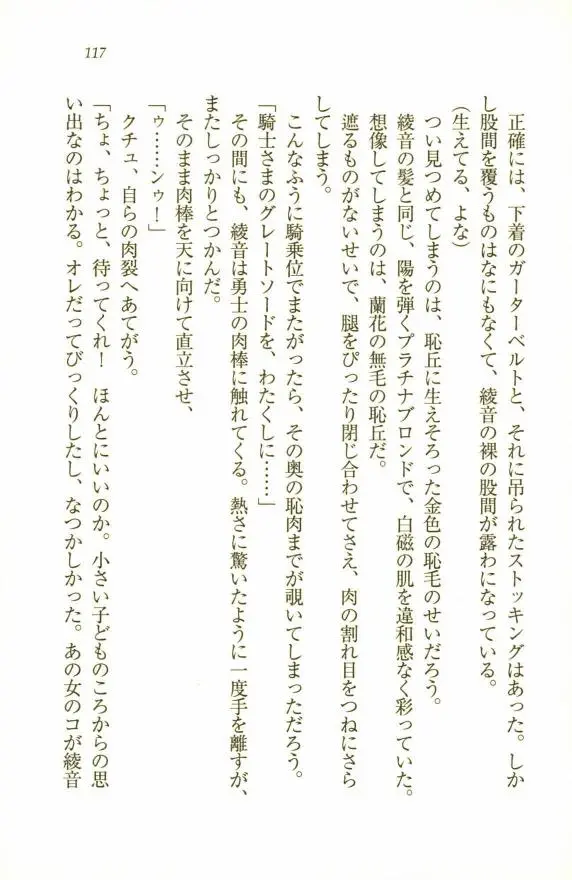 117
正確には、下着のガーターベルトと、それに吊られたストッキングはあった。しか
し股間を覆うものはなにもなくて、綾音の裸の股間が露わになっている。
(生えてる、よな)
つい見つめてしまうのは、恥丘に生えそろった金色の恥毛のせいだろう。
綾音の髪と同じ、陽を弾くプラチナブロンドで、白磁の肌を違和感なく彩っていた。
想像してしまうのは、蘭花の無毛の恥丘だ。
遮るものがないせいで、腿をぴったり閉じ合わせてさえ、肉の割れ目をつねにさら
してしまう。
こんなふうに騎乗位でまたがったら、その奥の恥肉までが覗いてしまっただろう。
「騎士さまのグレートソードを、わたくしに……」
その間にも、綾音は勇士の肉棒に触れてくる。熱さに驚いたように一度手を離すが、
またしっかりとつかんだ。
そのまま肉棒を天に向けて直立させ、
「ゥ……ンゥ!」
クチュ、自らの肉裂へあてがう。
「ちょ、ちょっと、待ってくれ! ほんとにいいのか。小さい子どものころからの思
い出なのはわかる。オレだってびっくりしたし、なつかしかった。あの女のコが綾音